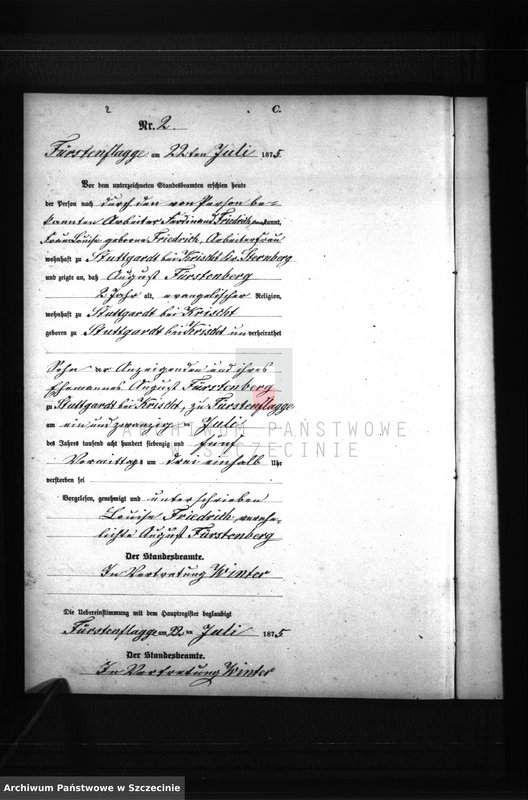 2
C.
Nr. 2.
Fürstenflagge am 22ten Juli 1875
Vor dem unterzeichneten Standesbeamten erschien heute
der Person nach durch den von Person be-
kannten Arbeiter Ferdinand Friedrich, anerkannt,
Frau Louise geborene Friedrich, Arbeiterfrau
wohnhaft zu Stuttgardt bei Krischt Sternberg
und zeigte an, daß August Fürstenberg
2 Jahr alt, evangelischer Religion,
wohnhaft zu Stuttgardt bei Krischt
geboren zu Stuttgardt bei Krischt unverheirathet
Sohn der Anzeigenden und ihres
Ehemannes August Fürstenberg
zu Stuttgardt bei Krischt, zu Fürstenflagge
am ein und zwanzigsten Juli
des Jahres tausend acht hundert siebenzig und fünf
Vormittags um drei einhalb Uhr
verstorben sei
Vorgelesen, genehmigt und unterschrieben
Louise Friedrich, verehe-
lichte August Fürstenberg
Der Standesbeamte.
In Vertretung Winter
Die Uebereinstimmung mit dem Hauptregister beglaubigt
Fürstenflagge am 22 ten Juli 1875
Der Standesbeamte.
In Vertretung Winter
ARCHIWUM PAŃSTWOWE
W SZCZECINIE
Archiwum Państwowe w Szczecinie